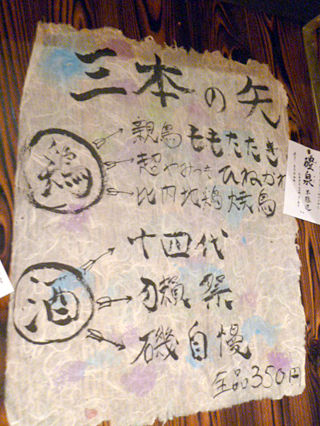 三本の矢
鶏
親鳥ももたたき
超やみつきひねポン
比内地鶏焼鳥
酒
十四代
獺祭
磯自慢
全品350円